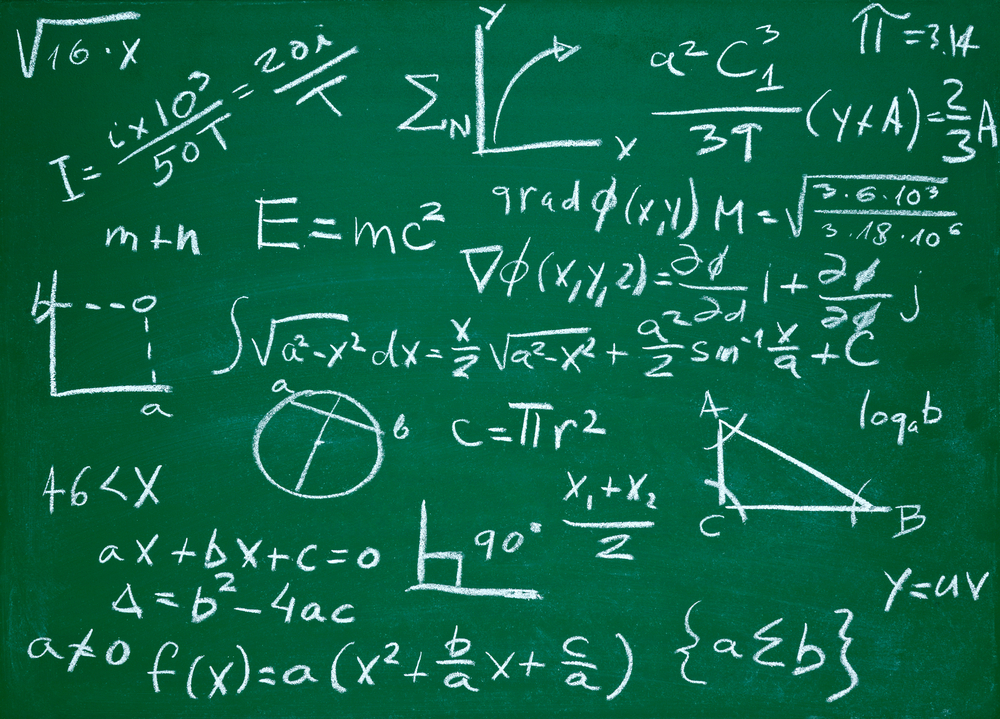 √16·x
I = i×10³/50T = 20i/T
Σ_N
Y
X
a²C₁³/3T (y+A) = 2/3 A
π = 3.14
m+n
E = mc²
grad φ(x,y)
M = √(3·6·10³/3·18·10⁶)
∇φ(x,y,z) = ∂φ/∂d i + ∂φ/∂φ j
a
∫√a²-x² dx = x/2 √a²-x² + a²/2 sin⁻¹ x/a + C
a
b
c = πr²
A
C
B
logₐb
+6 < X
(x₁ + x₂)/2
ax + bx + c = 0
90°
Δ = b² - 4ac
y = uv
a ≠ 0
f(x) = a(x² + b/a x + c/a)
{a Σ b}